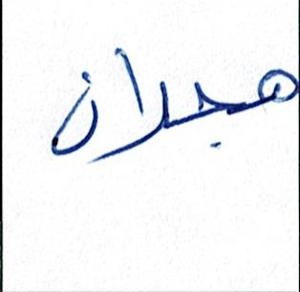 هجلان